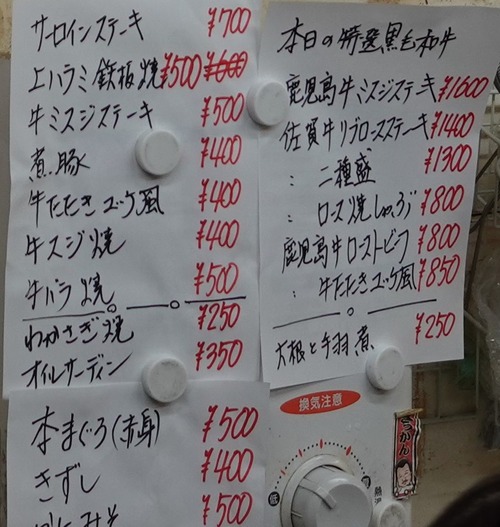 サーロインステーキ ¥700
上ハラミ鉄板焼 ¥500 ¥600
牛ミスジステーキ ¥500
煮豚 ¥400
牛たたきユッケ風 ¥400
牛スジ焼 ¥400
牛バラ焼 ¥500
わかさぎ焼 ¥250
オイルサーディン ¥350
本まぐろ(赤身) ¥500
きずし ¥400
¥500
本日の特選黒毛和牛
鹿児島牛ミスジステーキ ¥1600
佐賀牛リブロースステーキ ¥1400
： 二種盛 ¥1300
： ロース焼しゃぶ ¥800
鹿児島牛ローストビーフ ¥800
： 牛たたきユッケ風 ¥850
大根と手羽煮 ¥250
換気注意
低
高